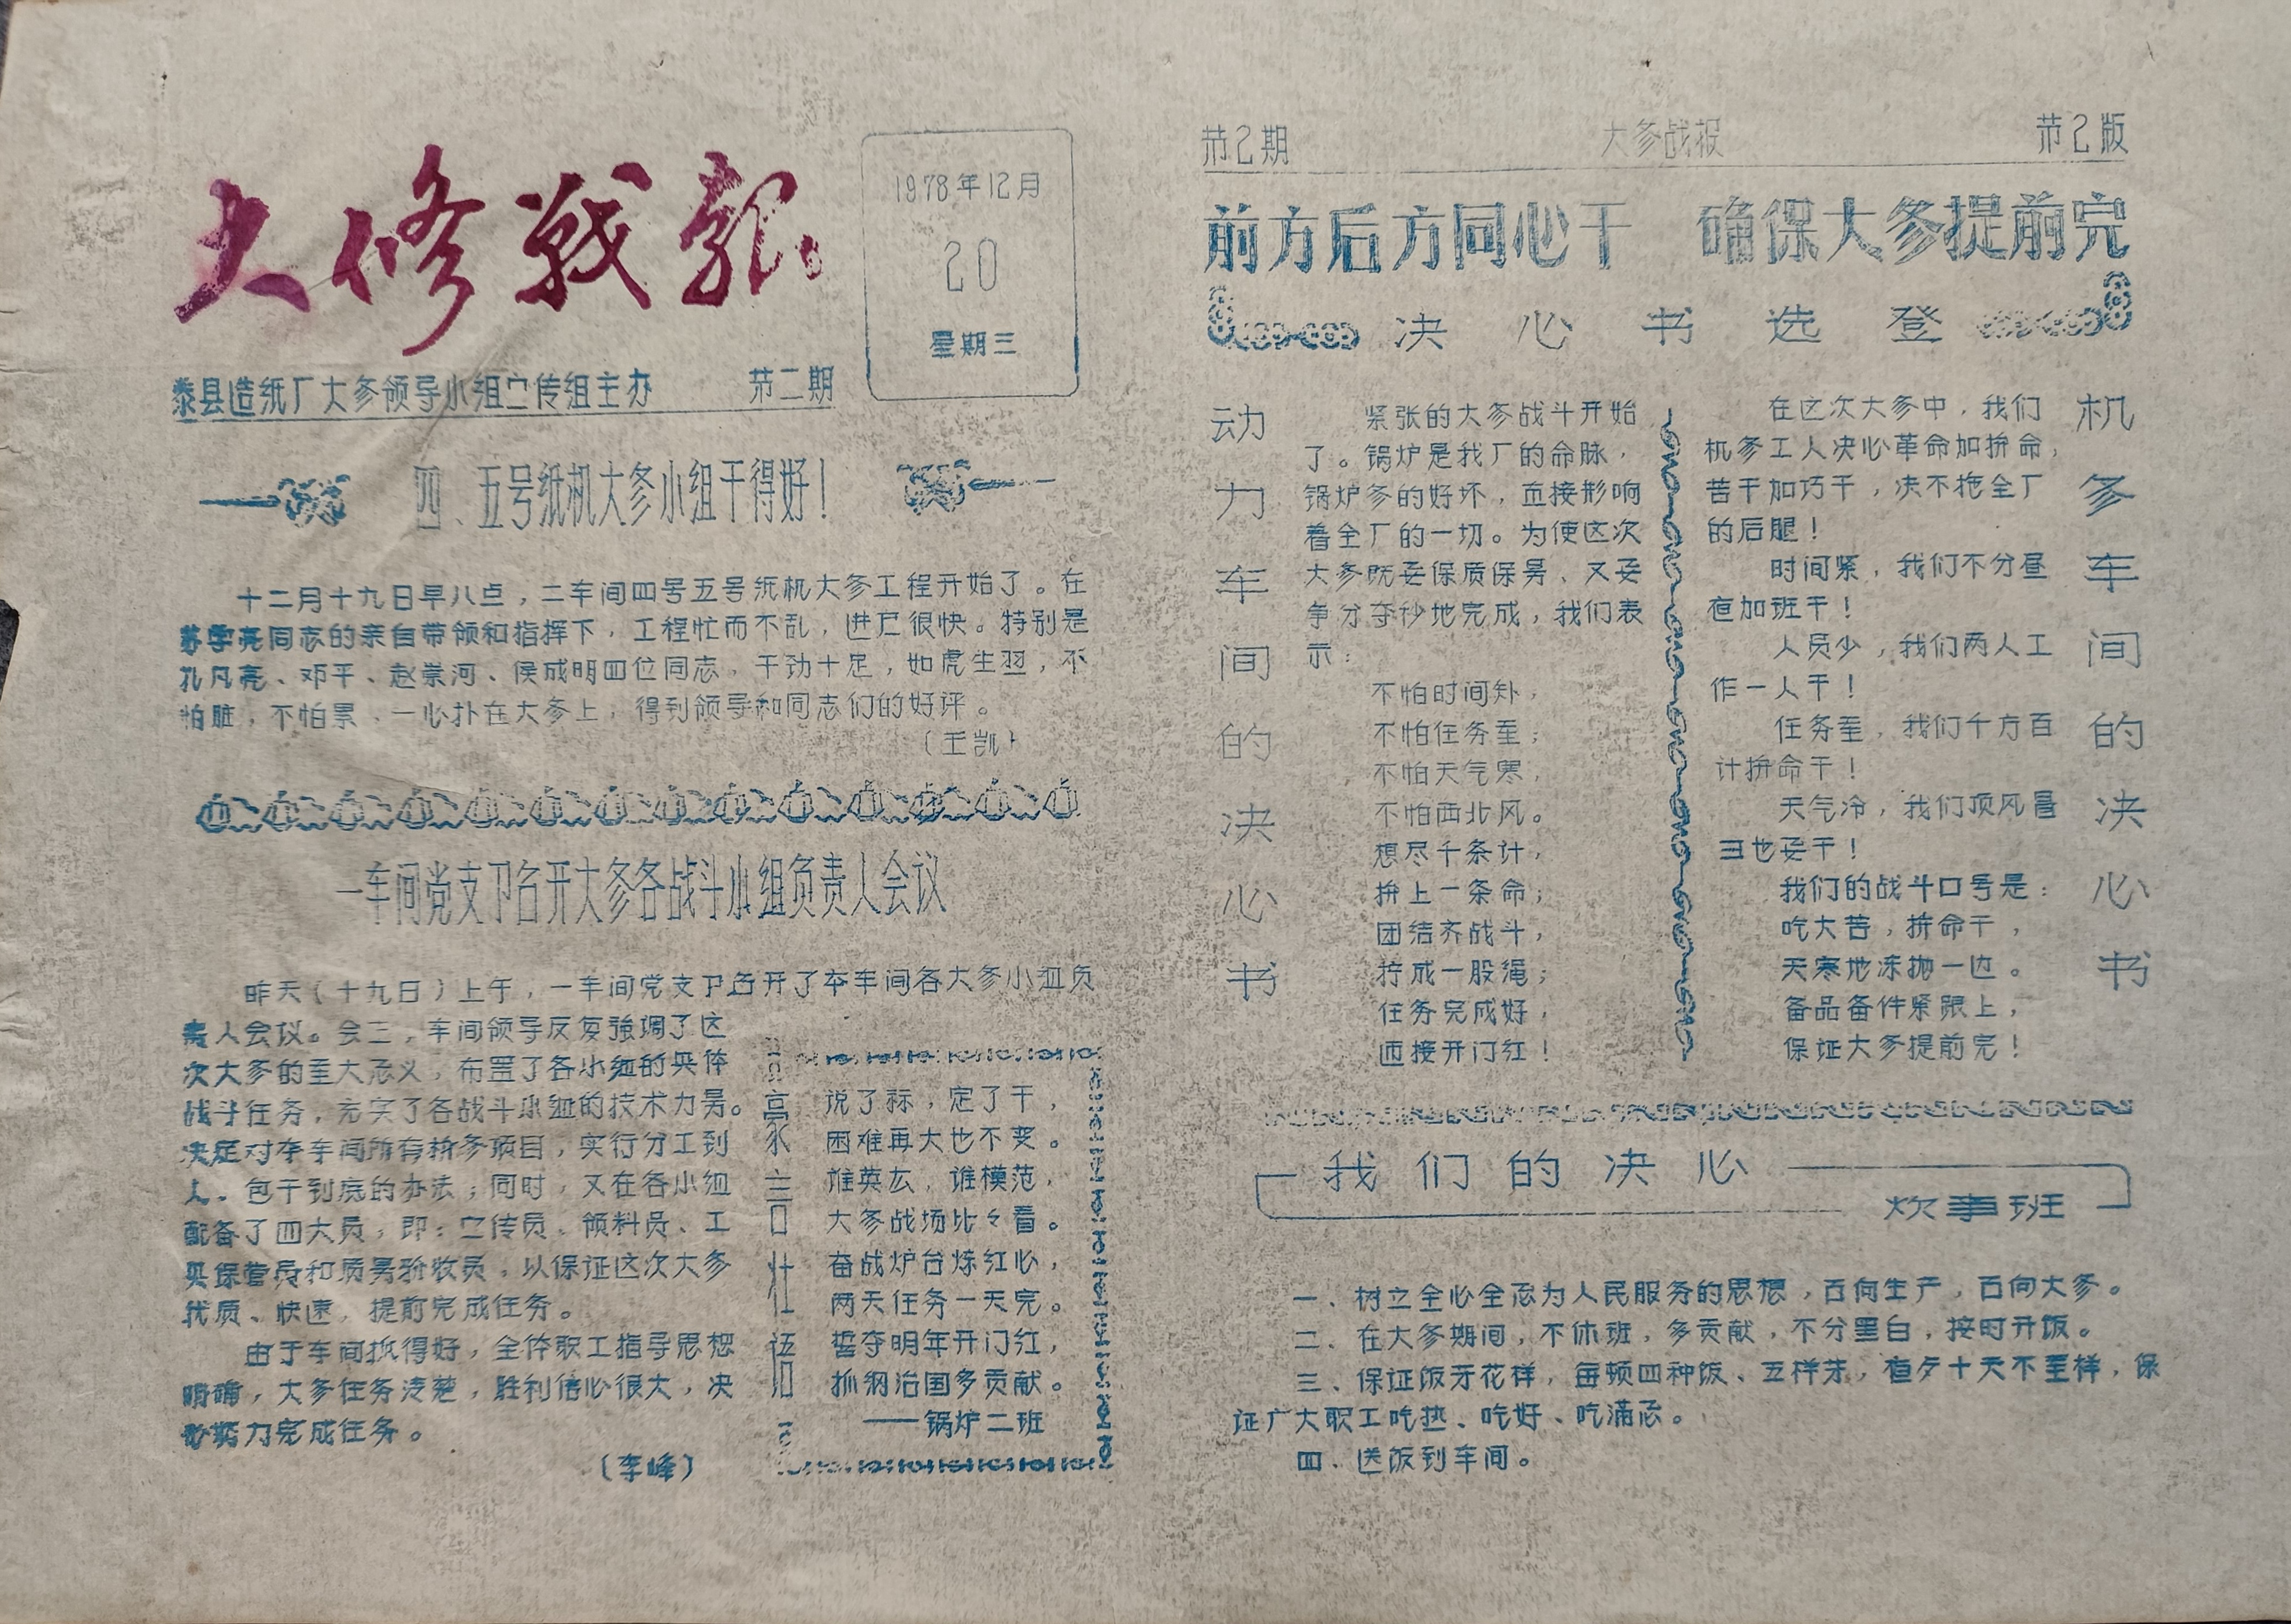 大修戰報
1978年12月
20
星期三
泰县造纸厂大修领导小组宣传组主办 第二期
四、五号纸机大修小组干得好！
十二月十九日早八点，二车间四号五号纸机大修工程开始了。在
苏学亮同志的亲自带领和指挥下，工程忙而不乱，进展很快。特别是
孔凡亮、邓平、赵崇河、侯成明四位同志，干劲十足，如虎生翌，不
怕脏，不怕累，一心扑在大修上，得到领导和同志们的好评。
（王凯）
一车间党支部召开大修各战斗小组负责人会议
昨天（十九日）上午，一车间党支部召开了本车间各大修小组负
责人会议。会上，车间领导反复强调了这
次大修的重大意义，布置了各小组的具体
战斗任务，充实了各战斗小组的技术力量。
决定对本车间所有检修项目，实行分工到
人、包干到底的办法；同时，又在各小组
配备了四大员，即：宣传员、领料员、工
具保管员和质量验收员，以保证这次大修
优质、快速，提前完成任务。
由于车间抓得好，全体职工指导思想
明确，大修任务清楚，胜利信心很大，决
心努力完成任务。
（李峰）
豪言壮语
说了算，定了干，
困难再大也不变。
谁英雄，谁模范，
大修战场比々看。
奋战炉台炼红心，
两天任务一天完。
誓夺明年开门红，
抓纲治国多贡献。
——锅炉二班
第2期 大修战报 第2版
前方后方同心干 确保大修提前完
决心书选登
动力车间的决心书
紧张的大修战斗开始
了。锅炉是我厂的命脉，
锅炉修的好坏，直接影响
着全厂的一切。为使这次
大修既要保质保量、又要
争分夺秒地完成，我们表
示：
不怕时间短，
不怕任务重；
不怕天气寒，
不怕西北风。
想尽千条计，
拚上一条命；
团结齐战斗，
拧成一股绳；
任务完成好，
迎接开门红！
机修车间的决心书
在这次大修中，我们
机修工人决心革命加拚命，
苦干加巧干，决不拖全厂
的后腿！
时间紧，我们不分昼
夜加班干！
人员少，我们两人工
作一人干！
任务重，我们千方百
计拚命干！
天气冷，我们顶风冒
雪也要干！
我们的战斗口号是：
吃大苦，拚命干，
天寒地冻抛一边。
备品备件紧跟上，
保证大修提前完！
我们的决心
炊事班
一、树立全心全意为人民服务的思想，面向生产，面向大修。
二、在大修期间，不休班，多贡献，不分黑白，按时开饭。
三、保证饭菜花样，每顿四种饭、五样菜，夜夕十天不重样，保
证广大职工吃热、吃好、吃满意。
四、送饭到车间。